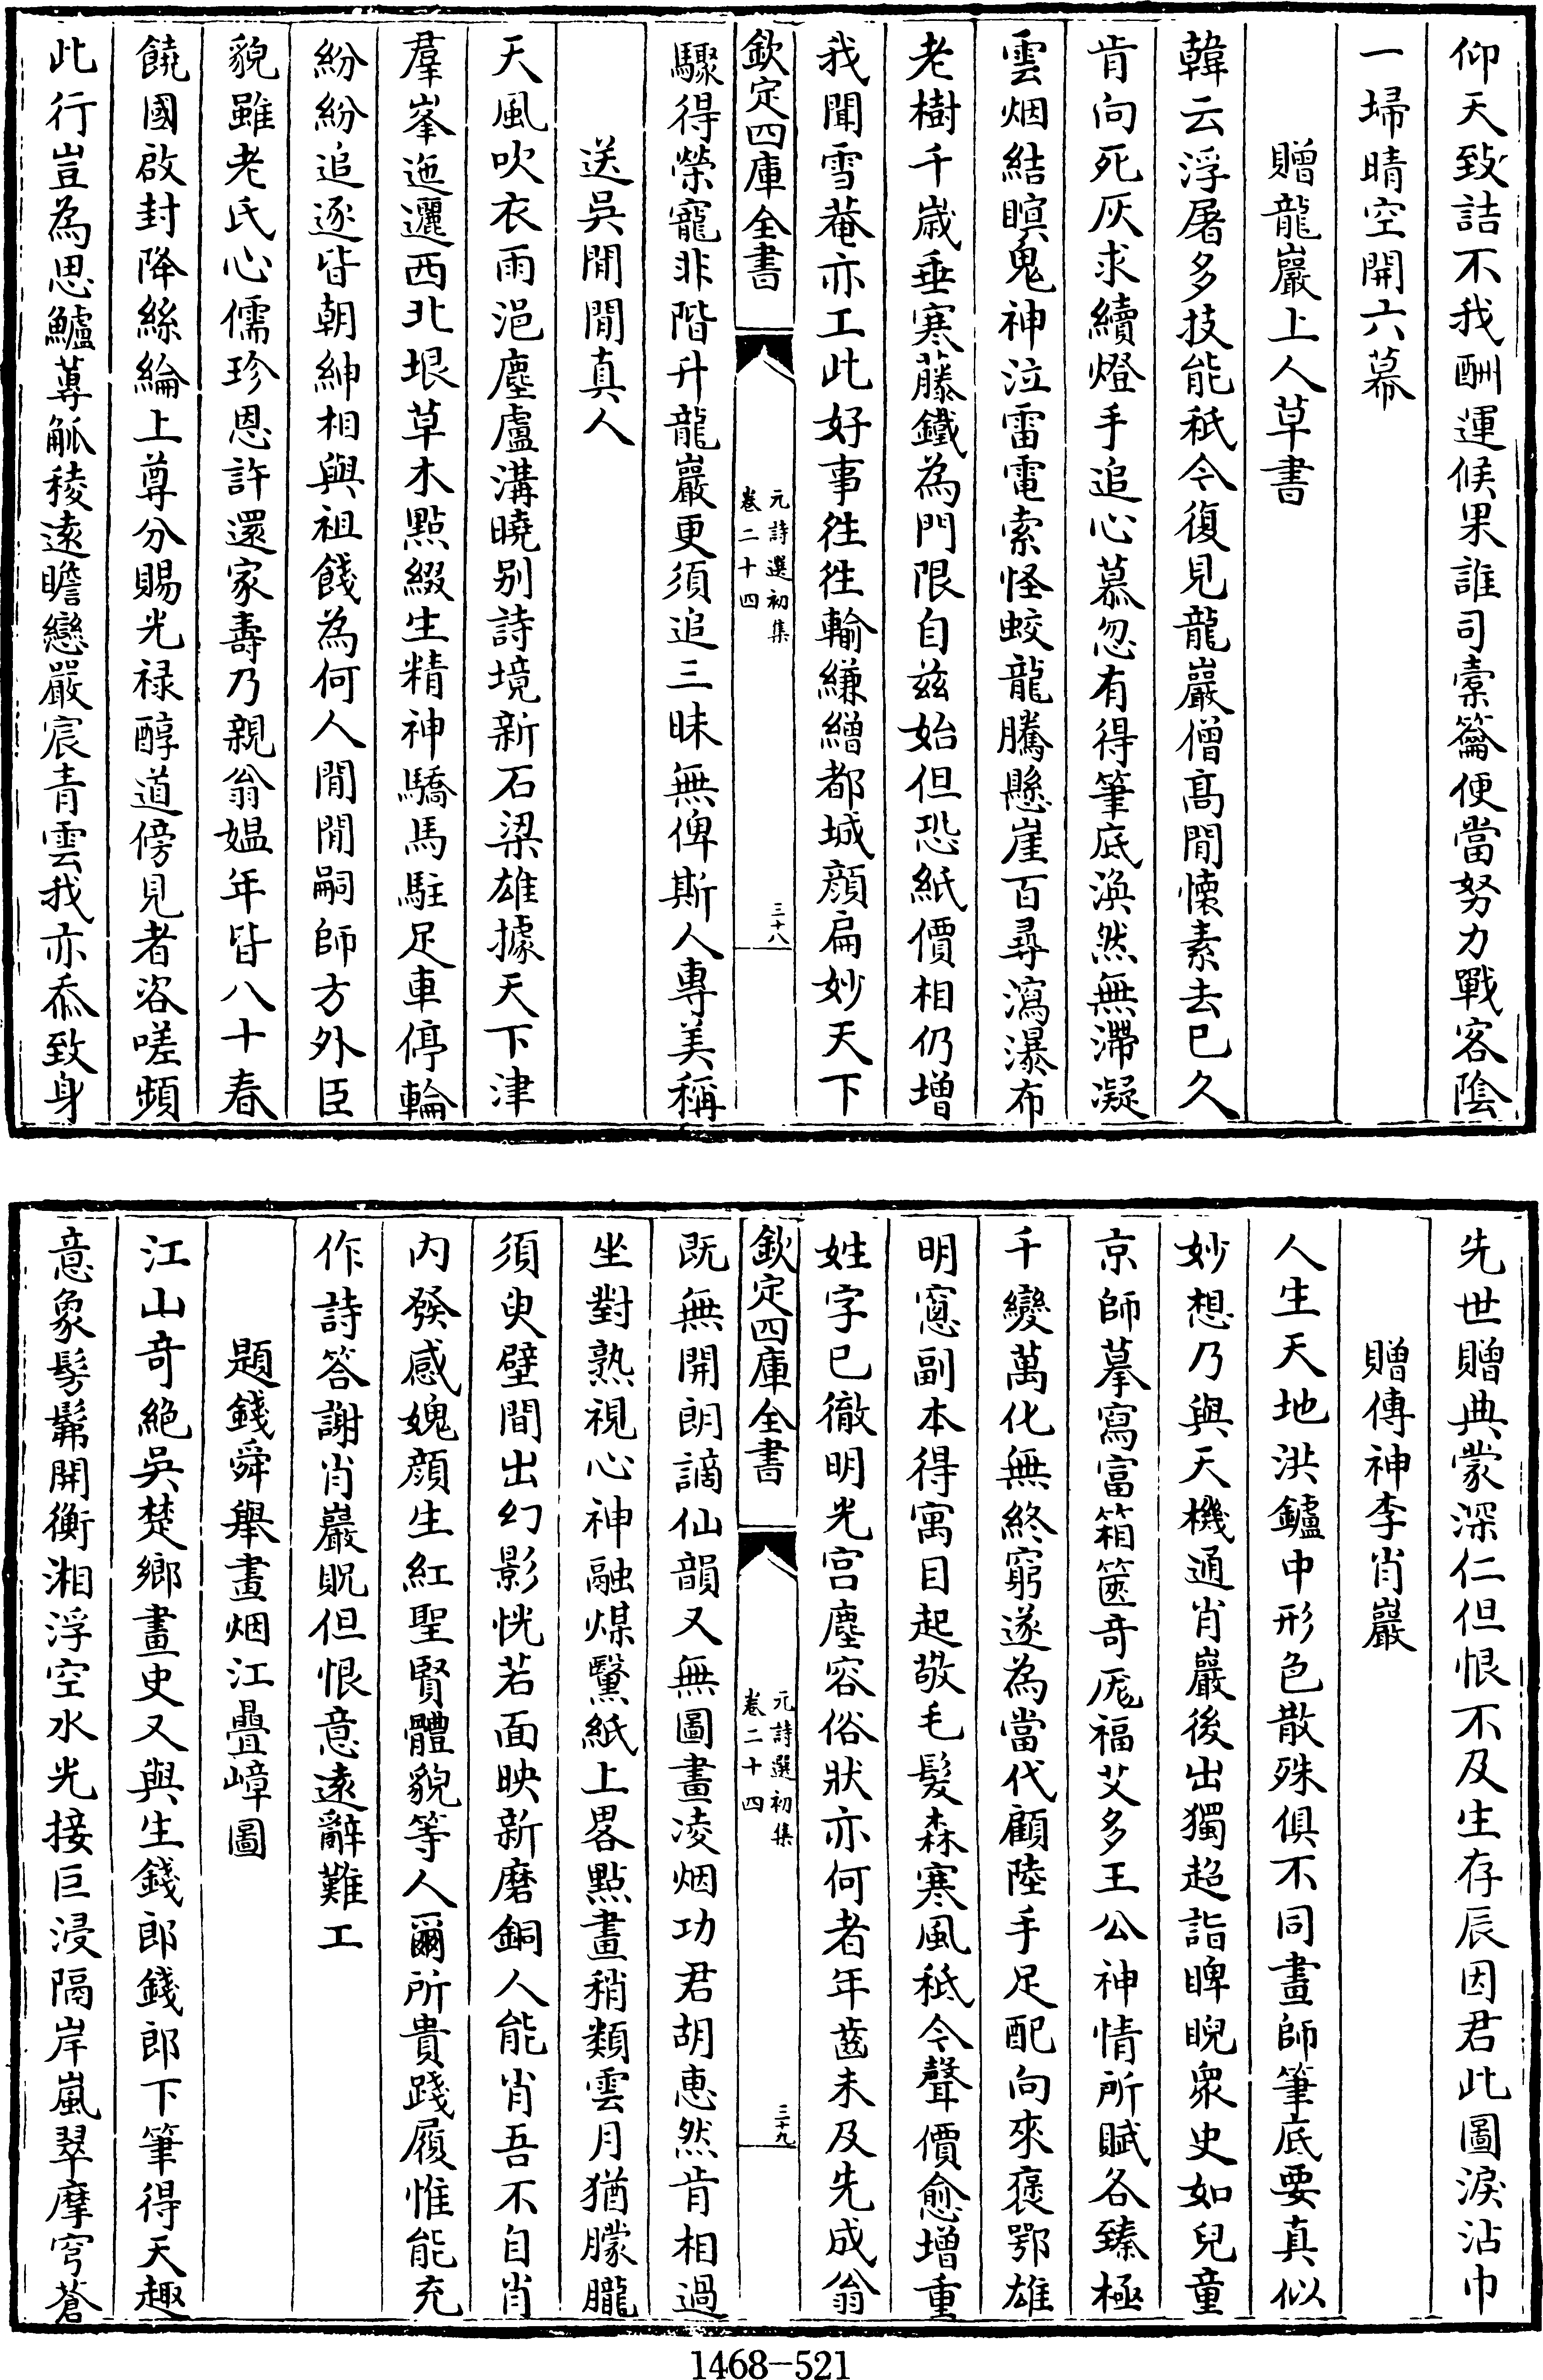 仰天致詰不我酬運候果誰司橐籥便當努力戰客陰
一埽晴空開六幕
贈龍巖上人草書
韓云浮屠多技能秖今復見龍巖僧髙閒懷素去已久
肯向死灰求續燈手追心慕忽有得筆底渙然無滯凝
雲烟結瞑鬼神泣雷電索怪蛟龍騰懸崖百尋瀉瀑布
老樹千歳垂寒藤鐵為門限自兹始但恐紙價相仍増
我聞雪菴亦工此好事徃徃輸縑繒都城顔扁妙天下
欽定四庫全書
元詩選初集
卷二十四
三十八
驟得榮寵非階升龍巖更須追三昧無俾斯人專美稱
送吳閒閒真人
天風吹衣雨浥塵盧溝曉别詩境新石梁雄據天下津
羣峯迤邐西北垠草木點綴生精神驕馬駐足車停輪
紛紛追逐皆朝紳相與祖餞為何人閒閒嗣師方外臣
貌雖老氏心儒珍恩許還家壽乃親翁媪年皆八十春
饒國啟封降絲綸上尊分賜光禄醇道傍見者咨嗟頻
此行豈為思鱸蓴觚稜逺瞻戀嚴宸青雲我亦忝致身
先世贈典蒙深仁但恨不及生存辰因君此圖淚沾巾
贈傳神李肖巖
人生天地洪鑪中形色散殊俱不同畫師筆底要真似
妙想乃與天機通肖巖後出獨超詣睥睨衆史如兒童
京師摹寫富箱篋奇厖福艾多王公神情所賦各臻極
千變萬化無終窮遂為當代顧陸手足配向來褒鄂雄
明窻副本得寓目起敬毛髮森寒風秖今聲價愈增重
姓字已徹明光宫塵容俗狀亦何者年齒未及先成翁
欽定四庫全書
元詩選初集
卷二十四
三十九
既無開朗謫仙韻又無圖畫凌烟功君胡惠然肯相過
坐對熟視心神融煤黳紙上畧點畫稍類雲月猶朦朧
須臾壁間出幻影恍若面映新磨銅人能肖吾不自肖
内發感媿顔生紅聖賢體貌等人爾所貴踐履惟能充
作詩答謝肖巖貺但恨意逺辭難工
題錢舜舉畫烟江疊嶂圖
江山奇絶吳楚鄉畫史又與生錢郎錢郎下筆得天趣
意象髣髴開衡湘浮空水光接巨浸隔岸嵐翠摩穹蒼
1468-521